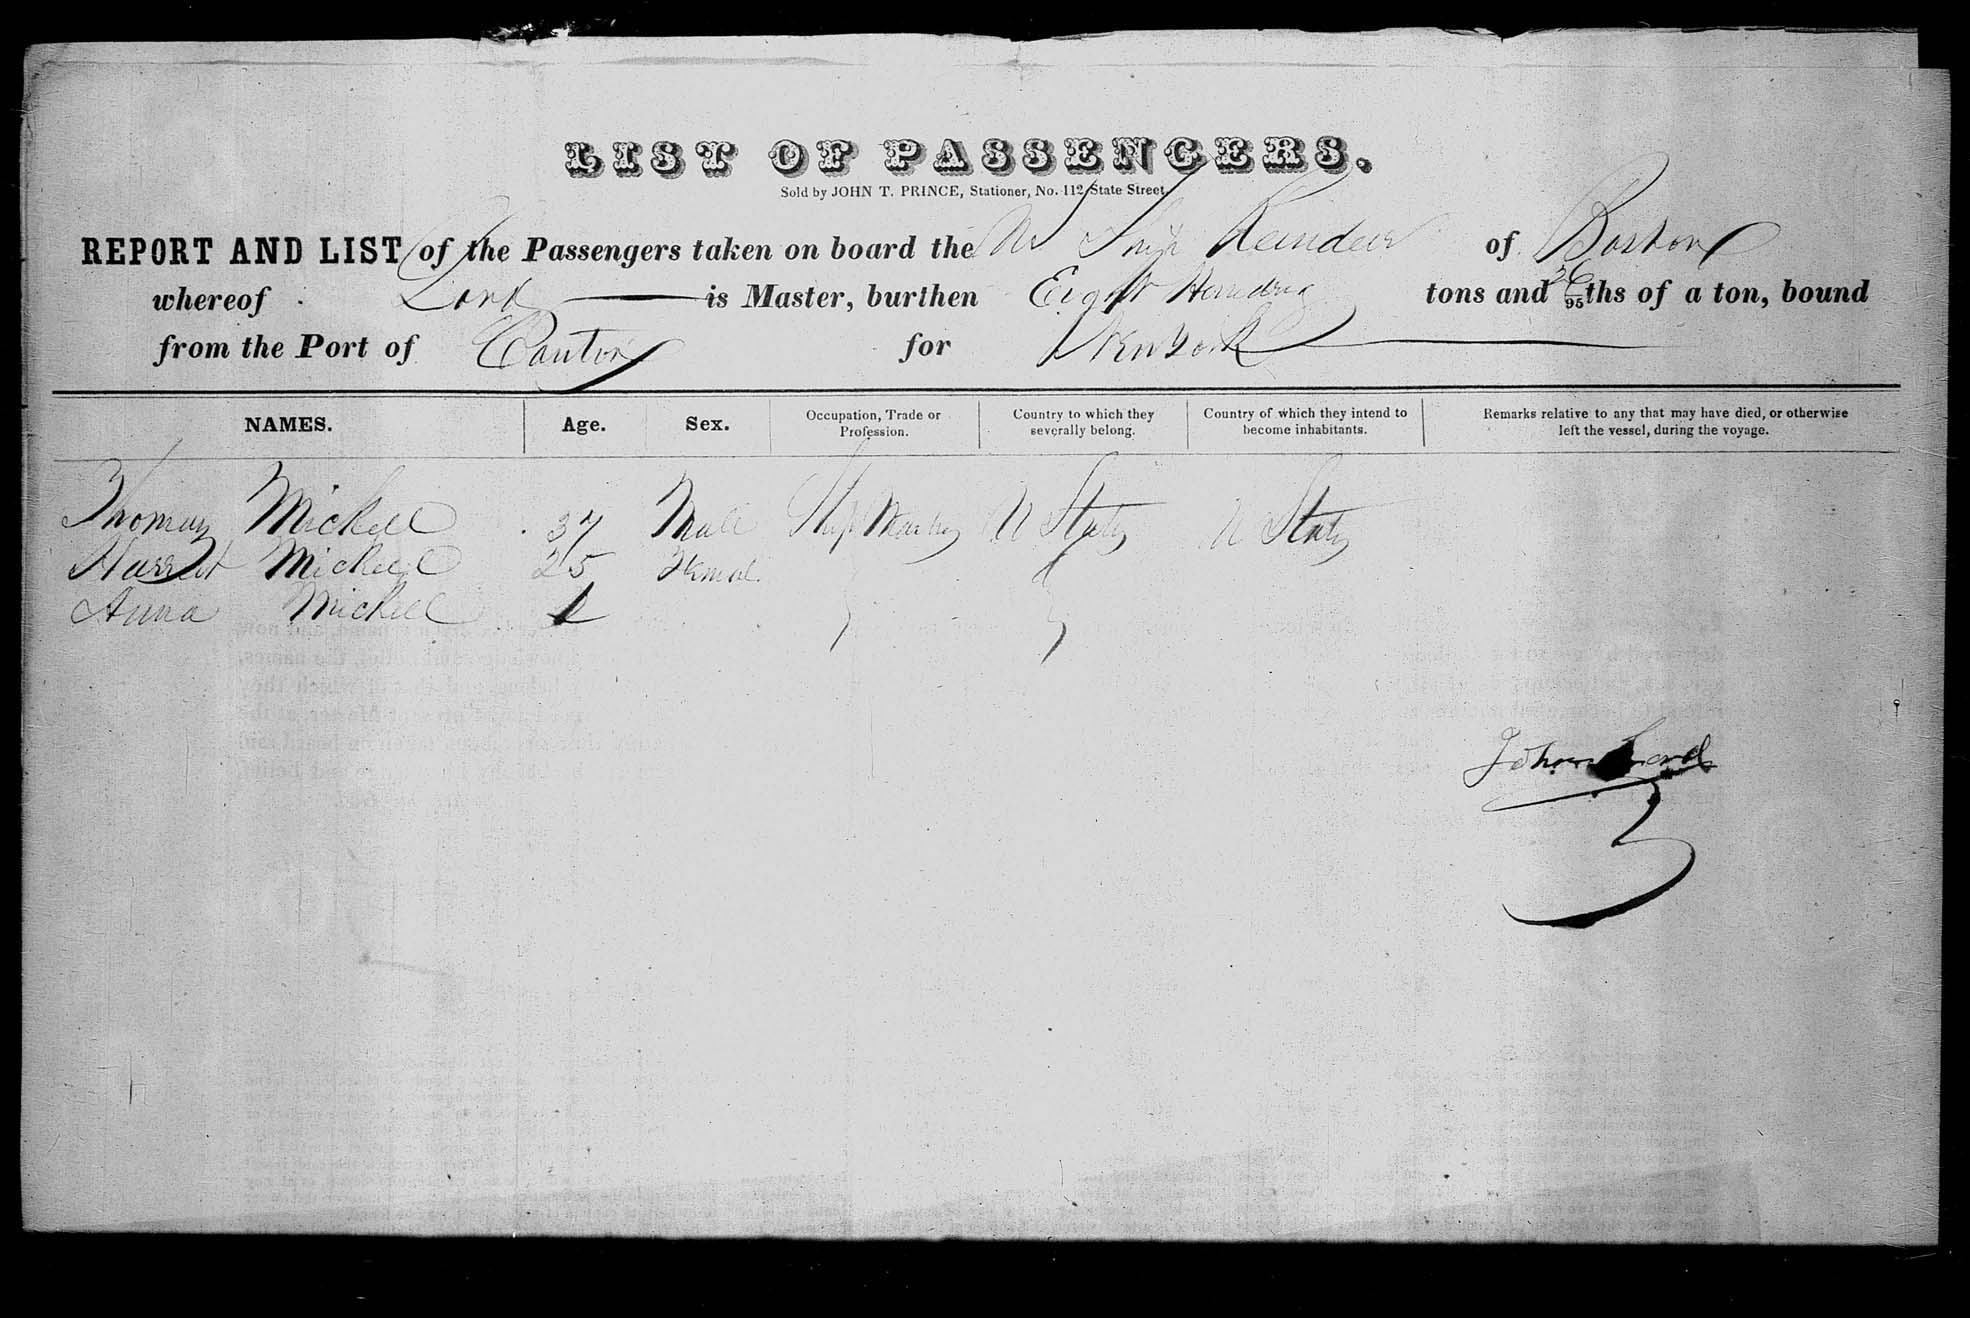 LIST OF PASSENGERS.
Sold by JOHN T. PRINCE, Stationer, No. 112 State Street.
REPORT AND LIST of the Passengers taken on board the Ship Reindeer of Boston
whereof Lord is Master, burthen Eight Hundred tons and 26/95ths of a ton, bound
from the Port of Canton for New York
NAMES. Age. Sex. Occupation, Trade or Profession. Country to which they severally belong. Country of which they intend to become inhabitants. Remarks relative to any that may have died, or otherwise left the vessel, during the voyage.
Thomas Mickell 37 Male Ship U States U States
Harriet Mickell 25 Femal
Anna Mickell
John Lord